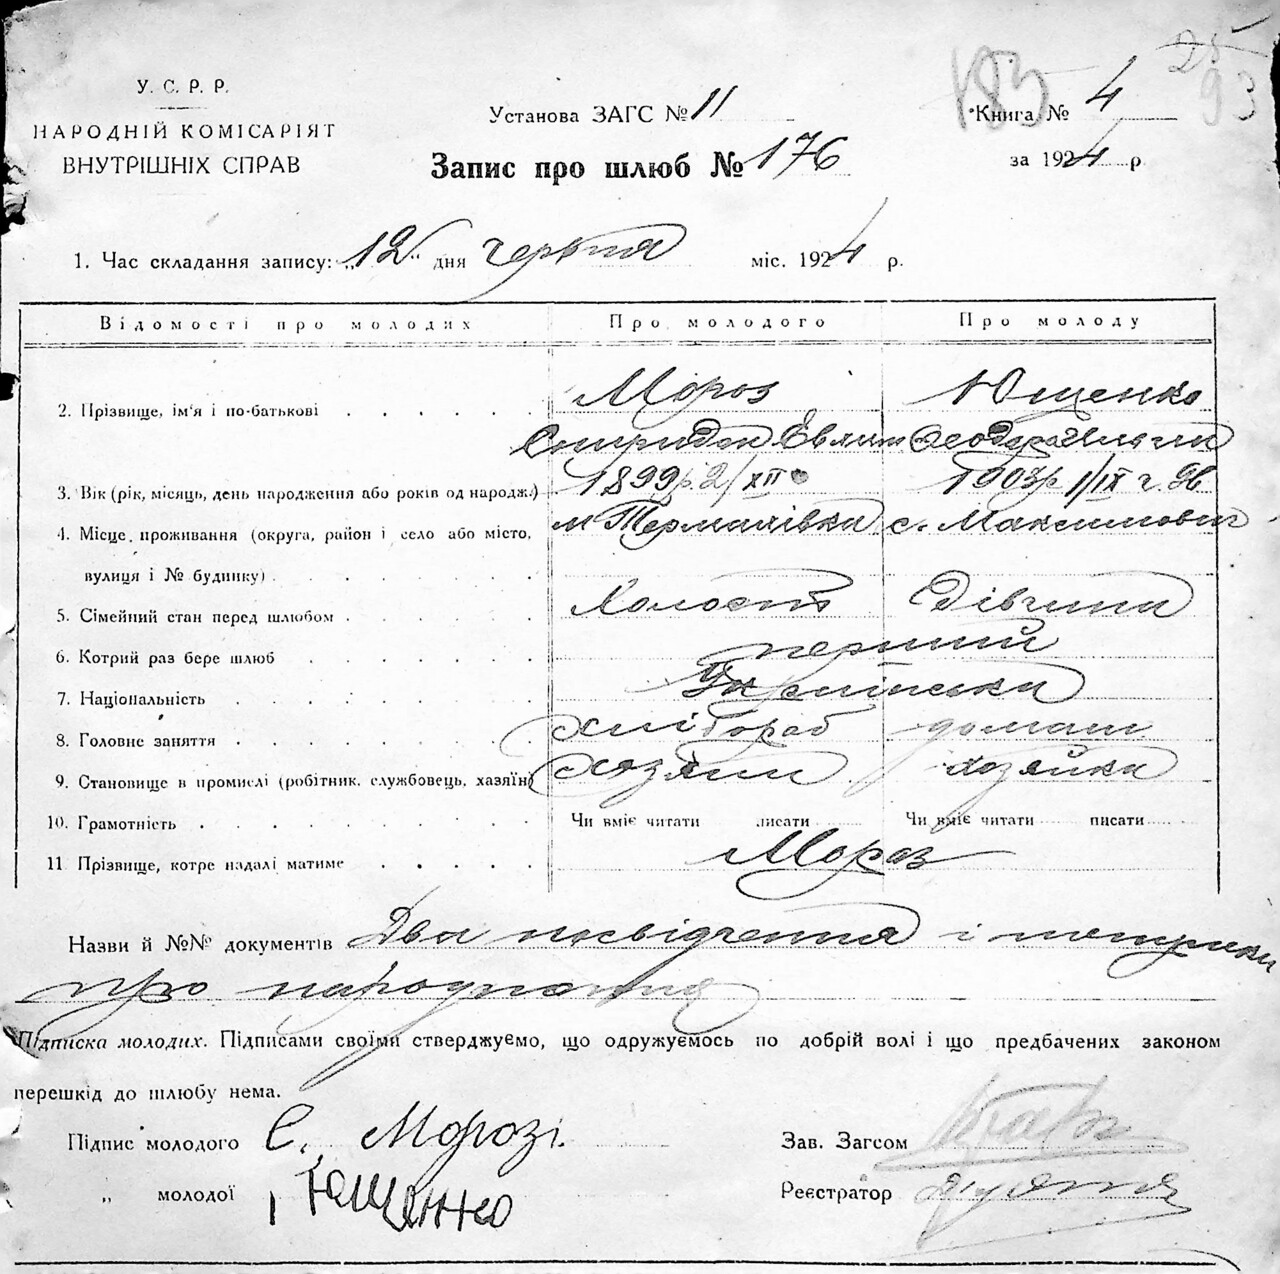 183
25
93
У. С. Р. Р.
НАРОДНІЙ КОМІСАРІЯТ
ВНУТРІШНІХ СПРАВ
Установа ЗАГС № 11
Книга № 4
Запис про шлюб № 176
за 1924 р.
1. Час складання запису: „12“ дня червня міс. 1924 р.
Відомості про молодих Про молодого Про молоду
2. Прізвище, ім'я і по-батькові Мороз Ющенко
Спиридон Евлам Феодора
3. Вік (рік, місяць, день народження або років од народж.) 1899р. 2/XII 1903р 1/IX
4. Місце проживання (округа, район і село або місто, м Термалівка с. Максимович
вулиця і № будинку)
5. Сімейний стан перед шлюбом Холост Дівчина
6. Котрий раз бере шлюб перший
7. Національність Українська
8. Головне заняття хлібороб домаш
9. Становище в промислі (робітник, службовець, хазяїн) хозяин хозяйка
10. Грамотність Чи вміє читати писати Чи вміє читати писати
11 Прізвище, котре надалі матиме Мороз
Назви й №№ документів Два посвідчення і
про народження
Підписка молодих. Підписами своїми стверджуємо, що одружуємось по добрій волі і що предбачених законом
перешкід до шлюбу нема.
Підпис молодого С. Мороз
Зав. Загсом
„ молодої Ющенко
Реєстратор